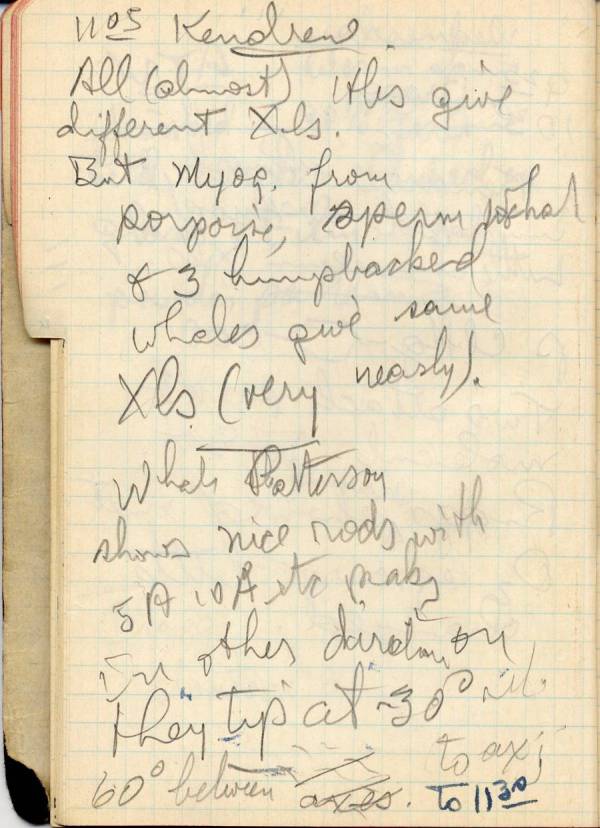 11 05 Kendrew.
All (almost) Hbs give
different Xls.
But Myog. from
porpoise, sperm whal
& 3 humpbacked
whales give same
Xls (very nearly).
Whale Patterson
shows nice rods with
5A 10A etc peaks
In other direction
they tip at ~30°
to axis
60° between axes. to 11 30